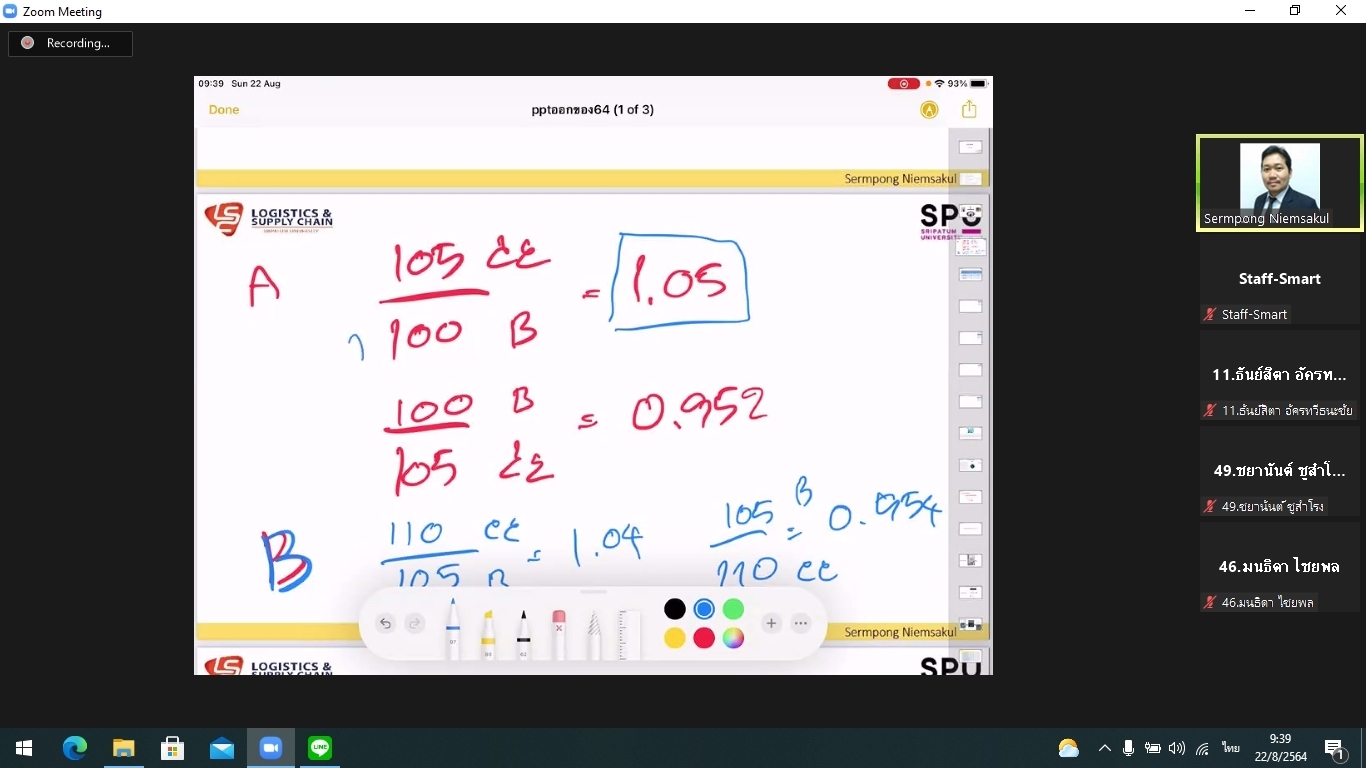 Zoom Meeting
Recording...
09:39 Sun 22 Aug
93%
Done
pptออกของ64 (1 of 3)
Sermpong Niemsakul
LOGISTICS &
SUPPLY CHAIN
SPU
SRIPATUM
UNIVERSITY
A
105 cc
100 B
= 1.05
100 B
105 cc
= 0.952
B
110 cc
105 B
= 1.04
105 B
110 cc
= 0.954
Sermpong Niemsakul
LOGISTICS &
SUPPLY CHAIN
SPU
Sermpong Niemsakul
Staff-Smart
Staff-Smart
11.ธันย์สิตา อัครท...
11.ธันย์สิตา อัครทวีธนะชัย
49.ชยานันต์ ชูสำโ...
49.ชยานันต์ ชูสำโรง
46.มนธิดา ไชยพล
46.มนธิดา ไชยพล
LINE
ไทย
9:39
22/8/2564
1